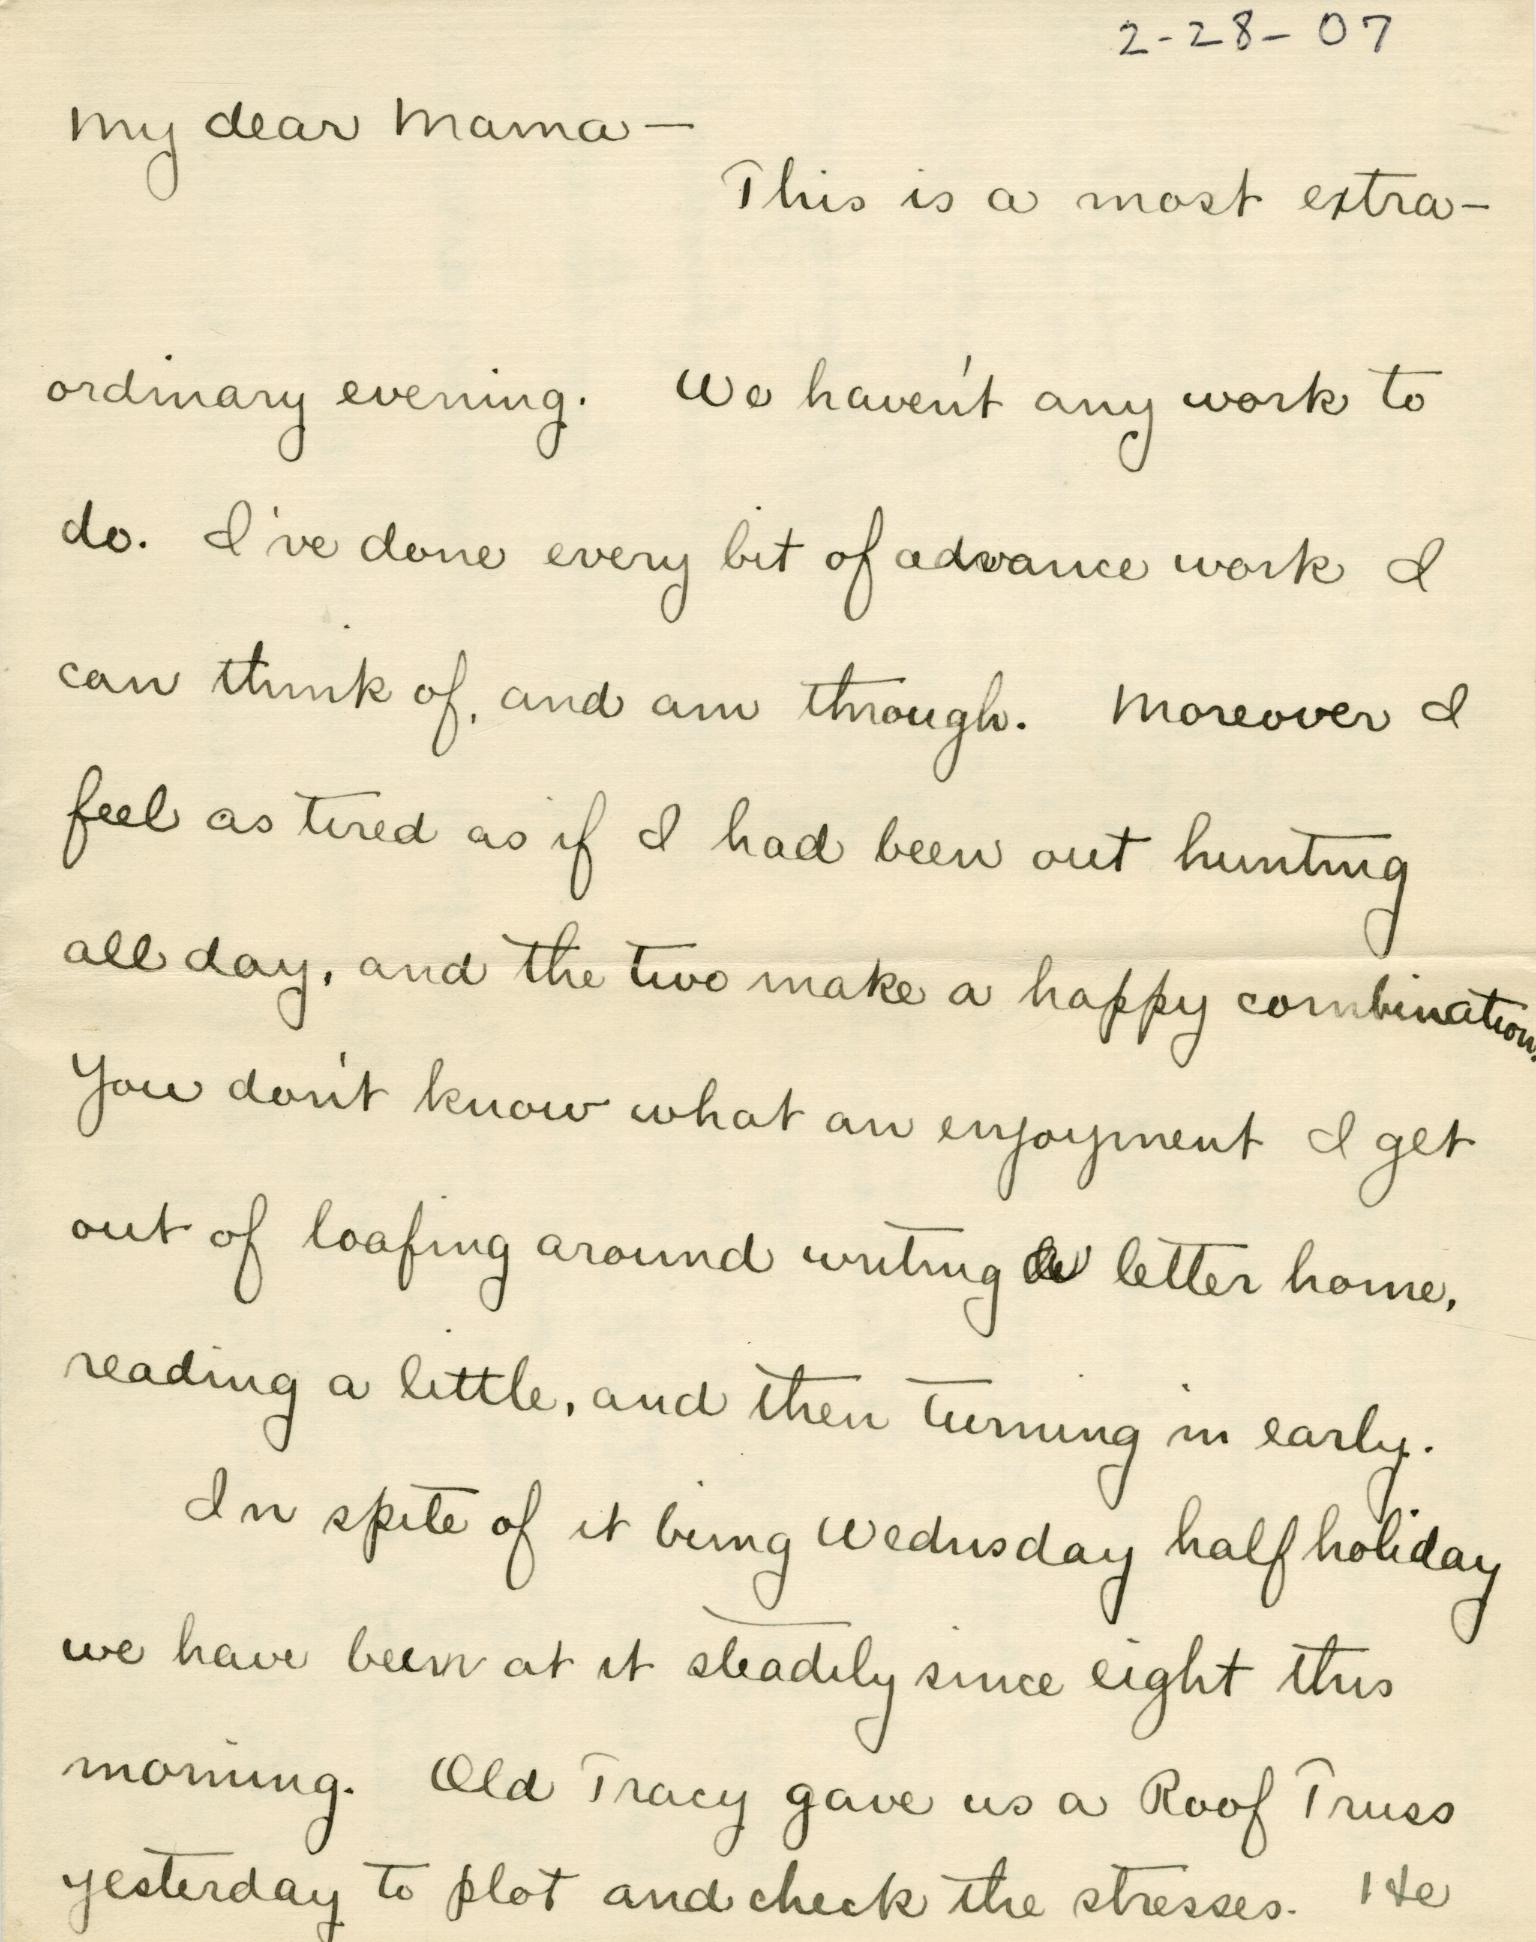 2-28-07
My dear Mama—
This is a most extra-
ordinary evening. We haven't any work to
do. I've done every bit of advance work I
can think of, and am through. Moreover I
feel as tired as if I had been out hunting
all day, and the two make a happy combination.
You don't know what an enjoyment I get
out of loafing around writing a letter home,
reading a little, and then turning in early.
In spite of it being Wednsday half holiday
we have been at it steadily since eight this
morning. Old Tracy gave us a Roof Truss
yesterday to plot and check the stresses. He